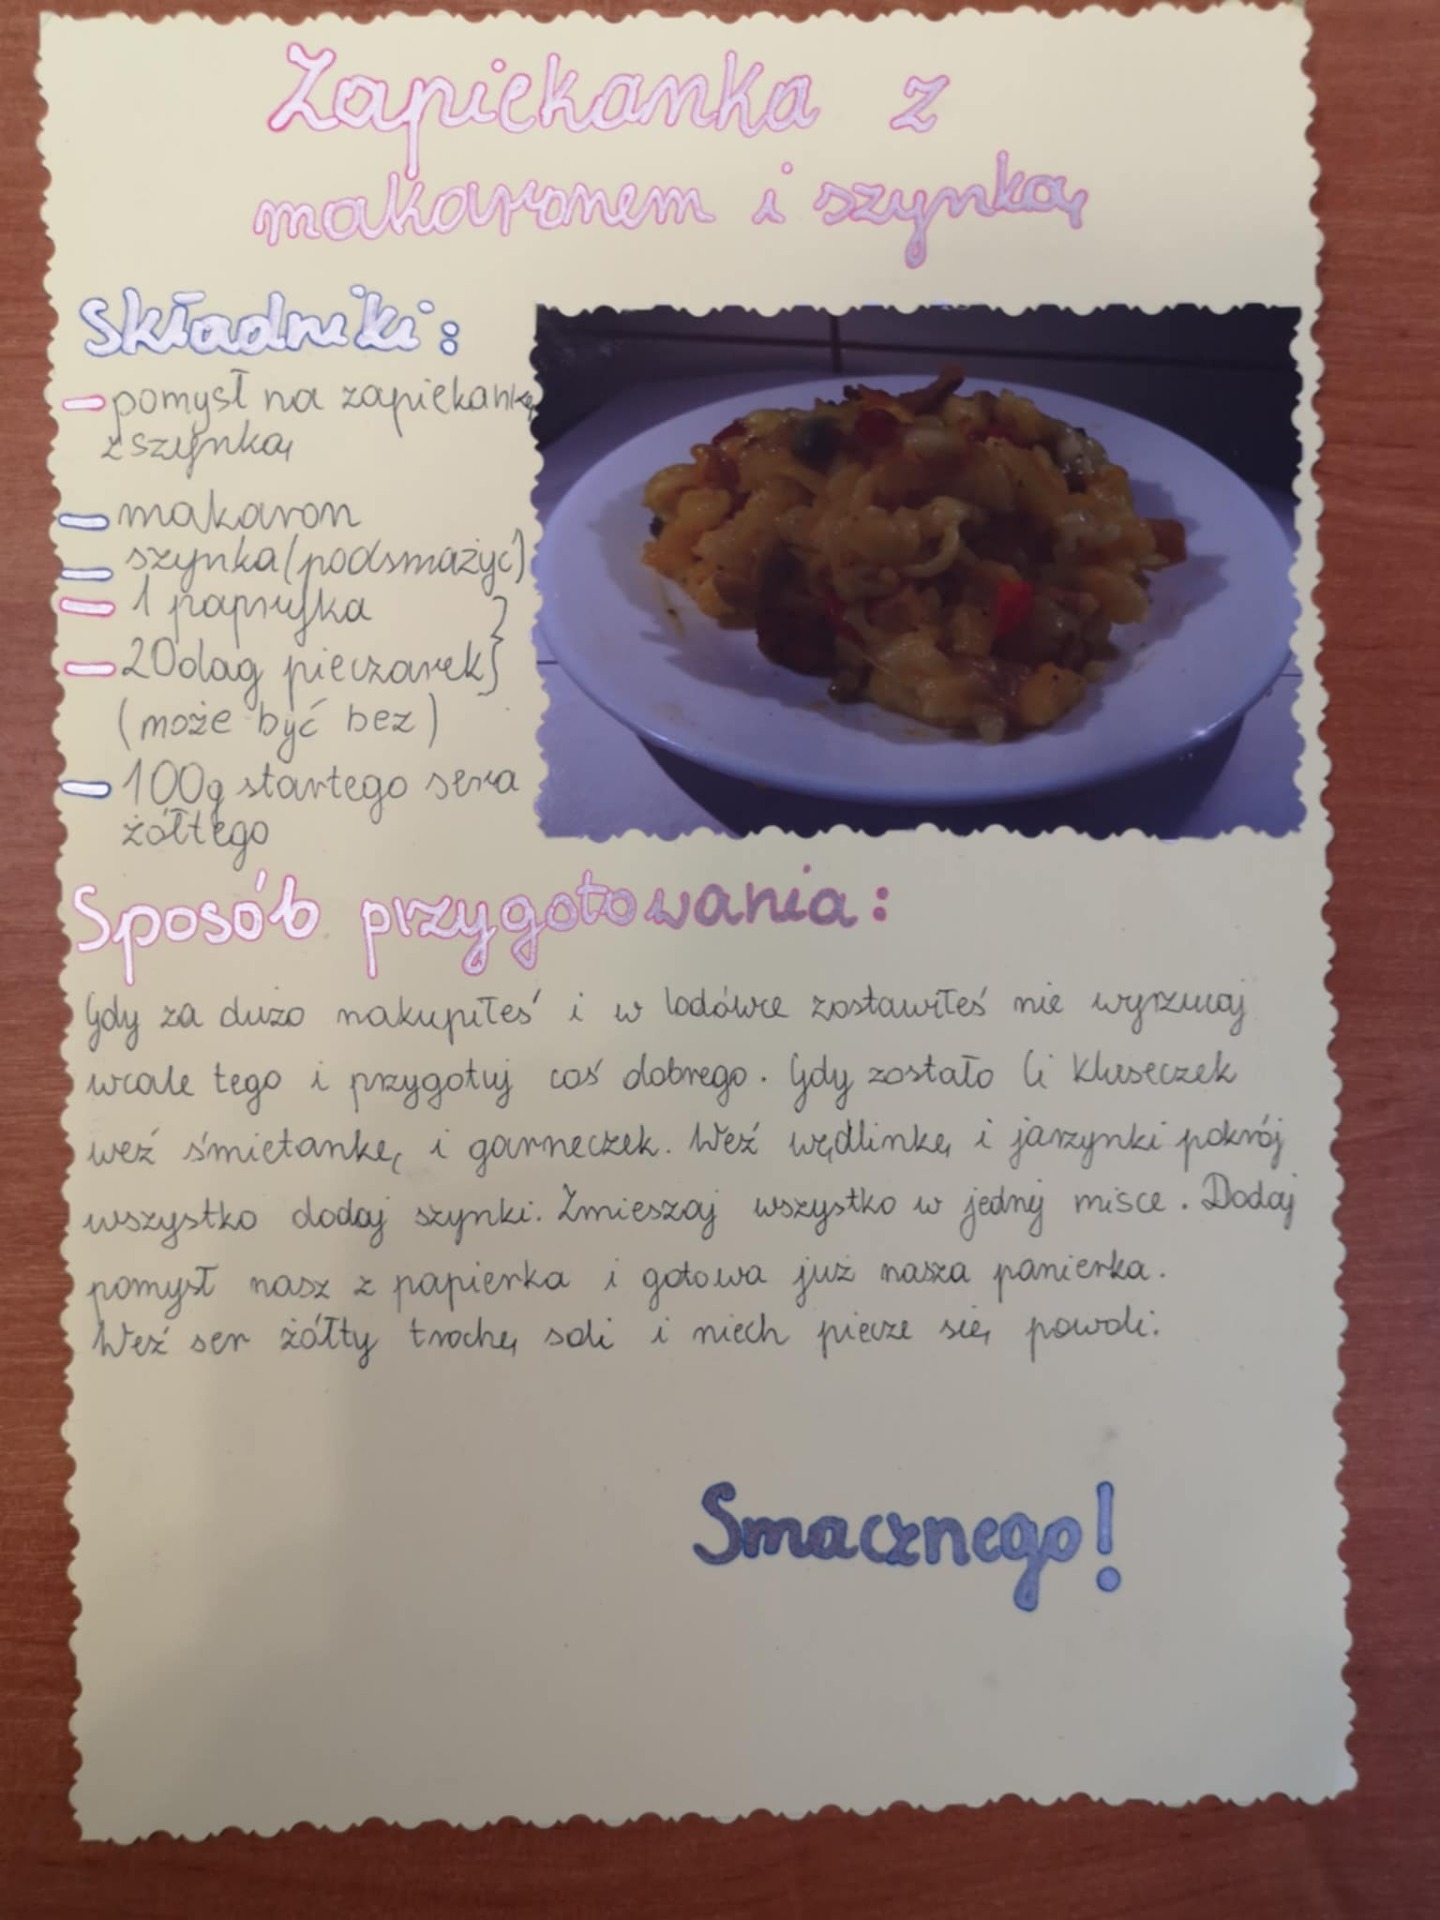 Zapiekanka z
makaronem i szynką
Składniki:
- pomysł na zapiekankę
z szynką
- makaron
- szynka (podsmażyć)
- 1 papryka
- 20dag pieczarek
(może być bez)
- 100g startego sera
żółtego
Sposób przygotowania:
Gdy za dużo nakupiłeś i w lodówce zostawiłeś nie wyrzucaj
wcale tego i przygotuj coś dobrego. Gdy zostało Ci kluseczek
weź śmietankę i garneczek. Weź wędlinkę i jarzynki pokrój
wszystko dodaj szynki. Zmieszaj wszystko w jednej misce. Dodaj
pomysł nasz z papierka i gotowa już nasza panierka.
Weź ser żółty trochę soli i niech piecze się powoli.
Smacznego!